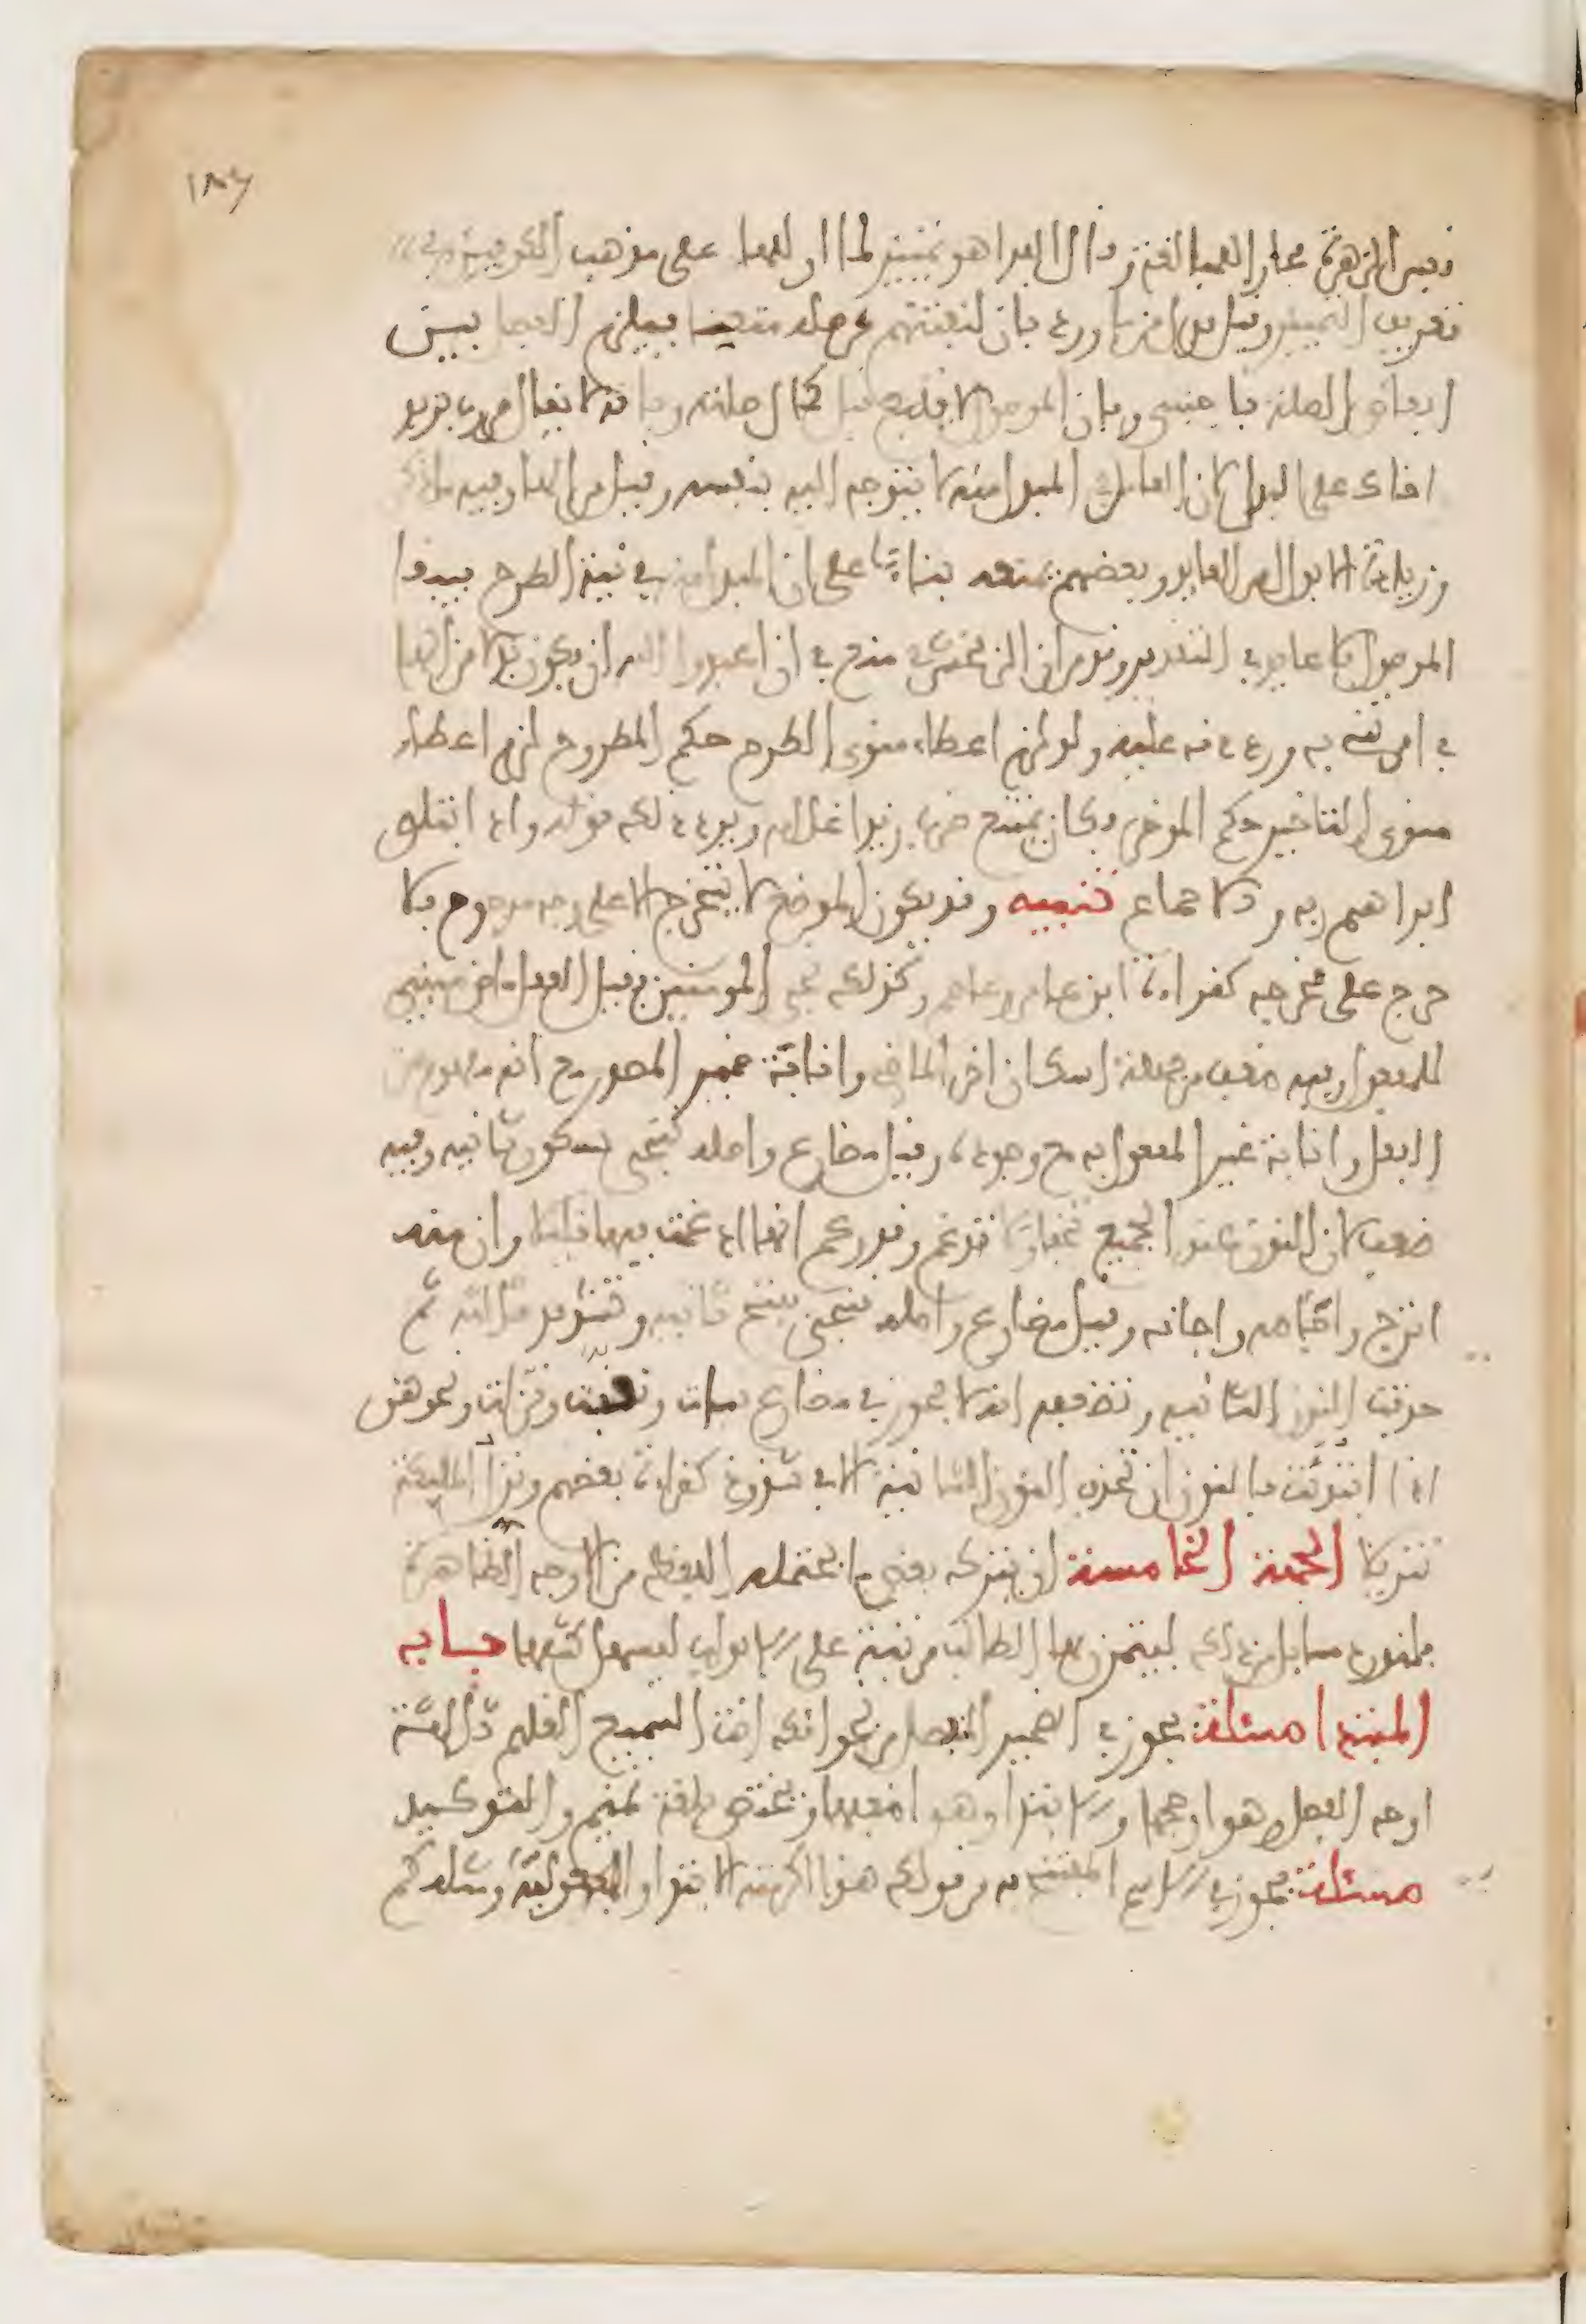 فيه الزهرة مجاز العما الفتنة وقال الفرا هو تمييز لما او للها على مذهب الكوفيين في
تعريف التمييز وقيل بدل من ما ورد بان لنفتنهم من صلة متعنا فيلزم الفصل بين
ابعاض الصلة باجنبي وبان الموصول لا يتبع قبل كمال صلته وبانه لا يقال مررت بزيد
اخاك على البدل لان العامل في المبدل منه لا يتوجه اليه بنفسه وقيل من الها وفيه ما ذكر
وزيادة الابدال من العايد وبعضهم يمنعه بناء على ان المبدل منه في نية الطرح فيبقا
الموصول بلا عايد في التقدير وقد مر ان الزمخشري منع في ان اعبدوا الله ان يكون بدلا من الها
في امرتني به ورددناه عليه ولو لزم اعطاء منوي الطرح حكم المطروح لزم اعطاء
منوي التاخير حكم الموخر فكان يمتنع ضرب زيدا غلامه ويرد ذلك قوله واذ ابتلى
ابراهيم ربه والاجماع تنبيه وقد يكون الموضع لا يتخرج الا على وجه مرجوح فلا
حرج على مخرجه كقراءة ابن عامر وعاصم وكذلك نجي المومنين فقيل الفعل ماض مبني
للمفعول وفيه ضعف من جهة اسكان اخر الماضي وانابة ضمير المصدر مع انه مفهوم من
الفعل وانابة غير المفعول به مع وجوده وقيل مضارع واصله ننجي بسكون ثانيه وفيه
ضعف لان النون عند الجيم تخفا ولا تدغم وقد زعم انها ادغمت فيها قليلا وان منه
اترج واجاصه واجانه وقيل مضارع واصله ننجي بفتح ثانيه وتشديد ثالثه ثم
حذفت النون الثانيه ويضعفه انه لا يجوز في مضارع نبات ونقبت ونزلت ونحوهن
اذا ابتدئت بالنون ان تحذف النون الثانية الا في شذوذ كقراءة بعضهم ونزل الملئكة
تنزيلا الجهة الخامسة ان يترك بعض ما يحتمله اللفظ من الاوجه الظاهرة
ولنورد مسايل من ذلك ليتمرن بها الطالب مرتبة على الابواب ليسهل كشفها باب
المبتدا مسئلة يجوز في الضمير المنفصل من نحو انك انت السميع العليم ثلاثة
اوجه الفصل وهو ارجحها والابتدا وهو اضعفها ويختص بلغة تميم والتوكيد
مسئلة يجوز في الاسم المفتتح به من قولك هذا اكرمته الابتدا والمفعولية ومثله كم